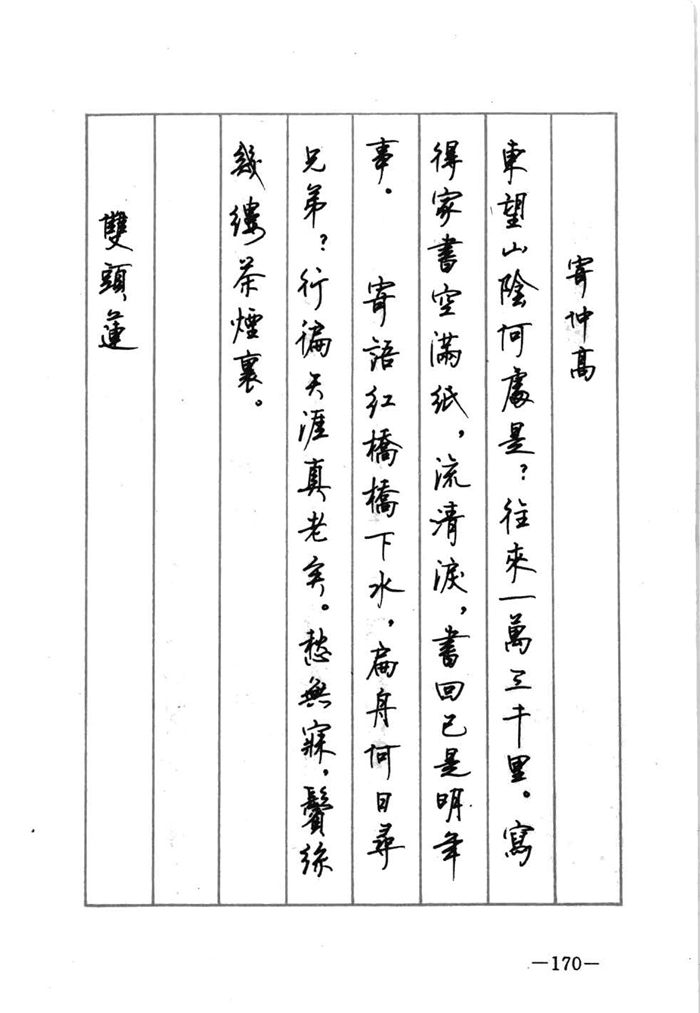 寄仲高
東望山陰何處是？往來一萬三千里。寫
得家書空滿紙，流清淚，書回已是明年
事。　寄語紅橋橋下水，扁舟何日尋
兄弟？行徧天涯真老矣。愁無寐，鬢絲
幾縷茶煙裏。
雙頭蓮
—170—